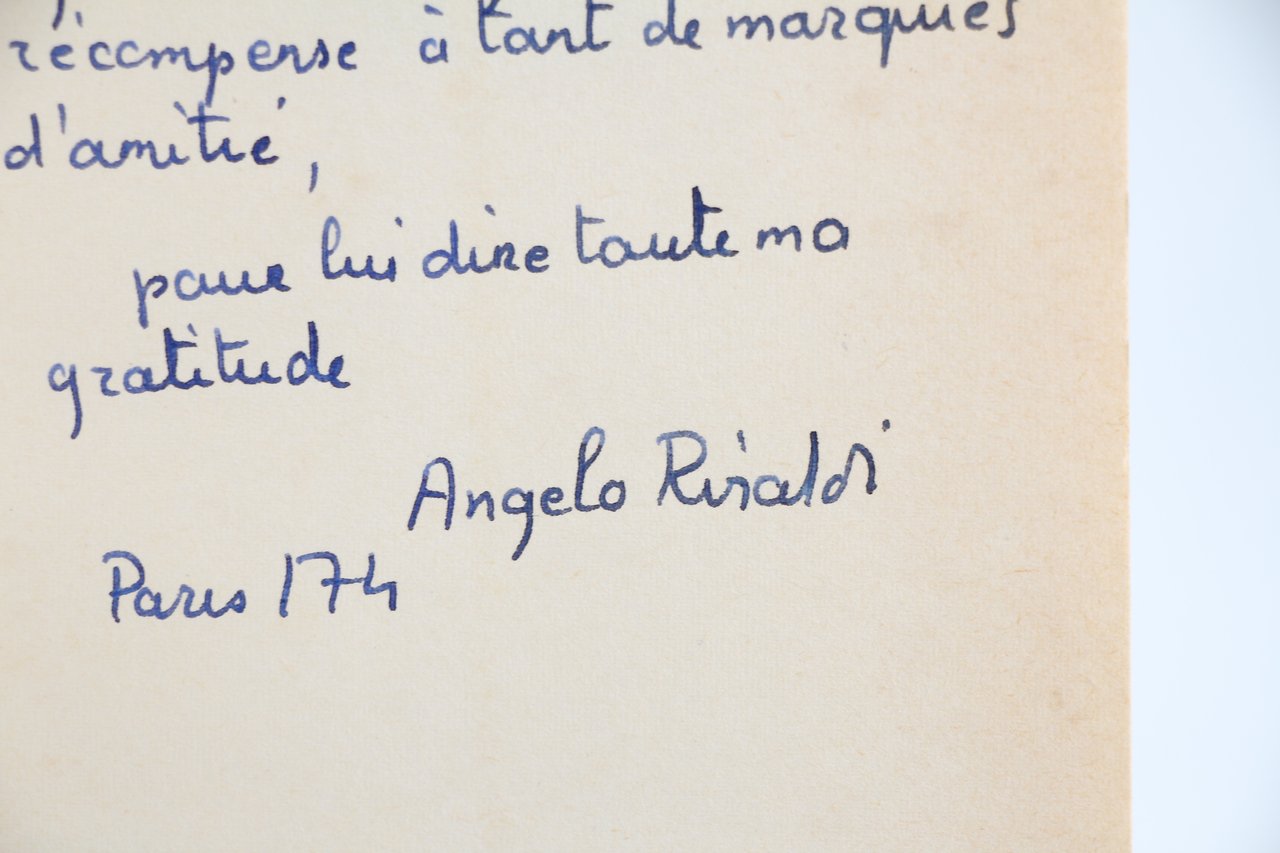 récompense à tant de marques
d'amitié,
pour lui dire toute ma
gratitude
Angelo Rinaldi
Paris 174